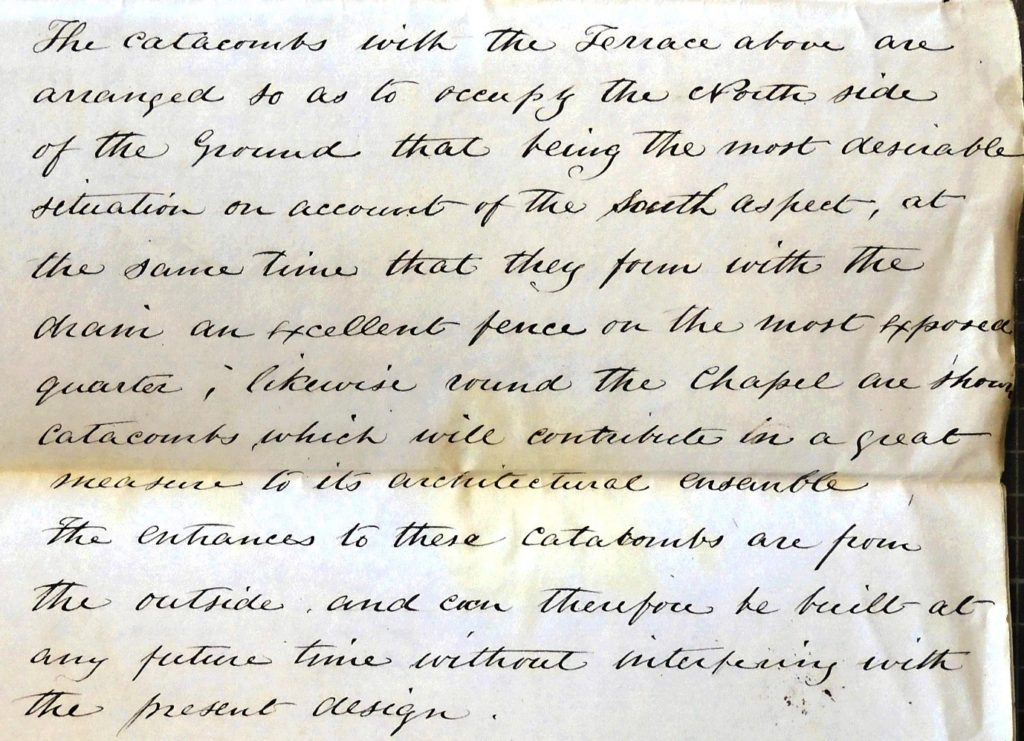 The Catacombs with the Terrace above are
arranged so as to occupy the North side
of the Ground that being the most desirable
situation on account of the South aspect, at
the same time that they form with the
drain an excellent fence on the most exposed
quarter; likewise round the Chapel are shown
Catacombs which will contribute in a great
measure to its architectural ensemble
The entrances to these Catacombs are from
the outside and can therefore be built at
any future time without interfering with
the present design.